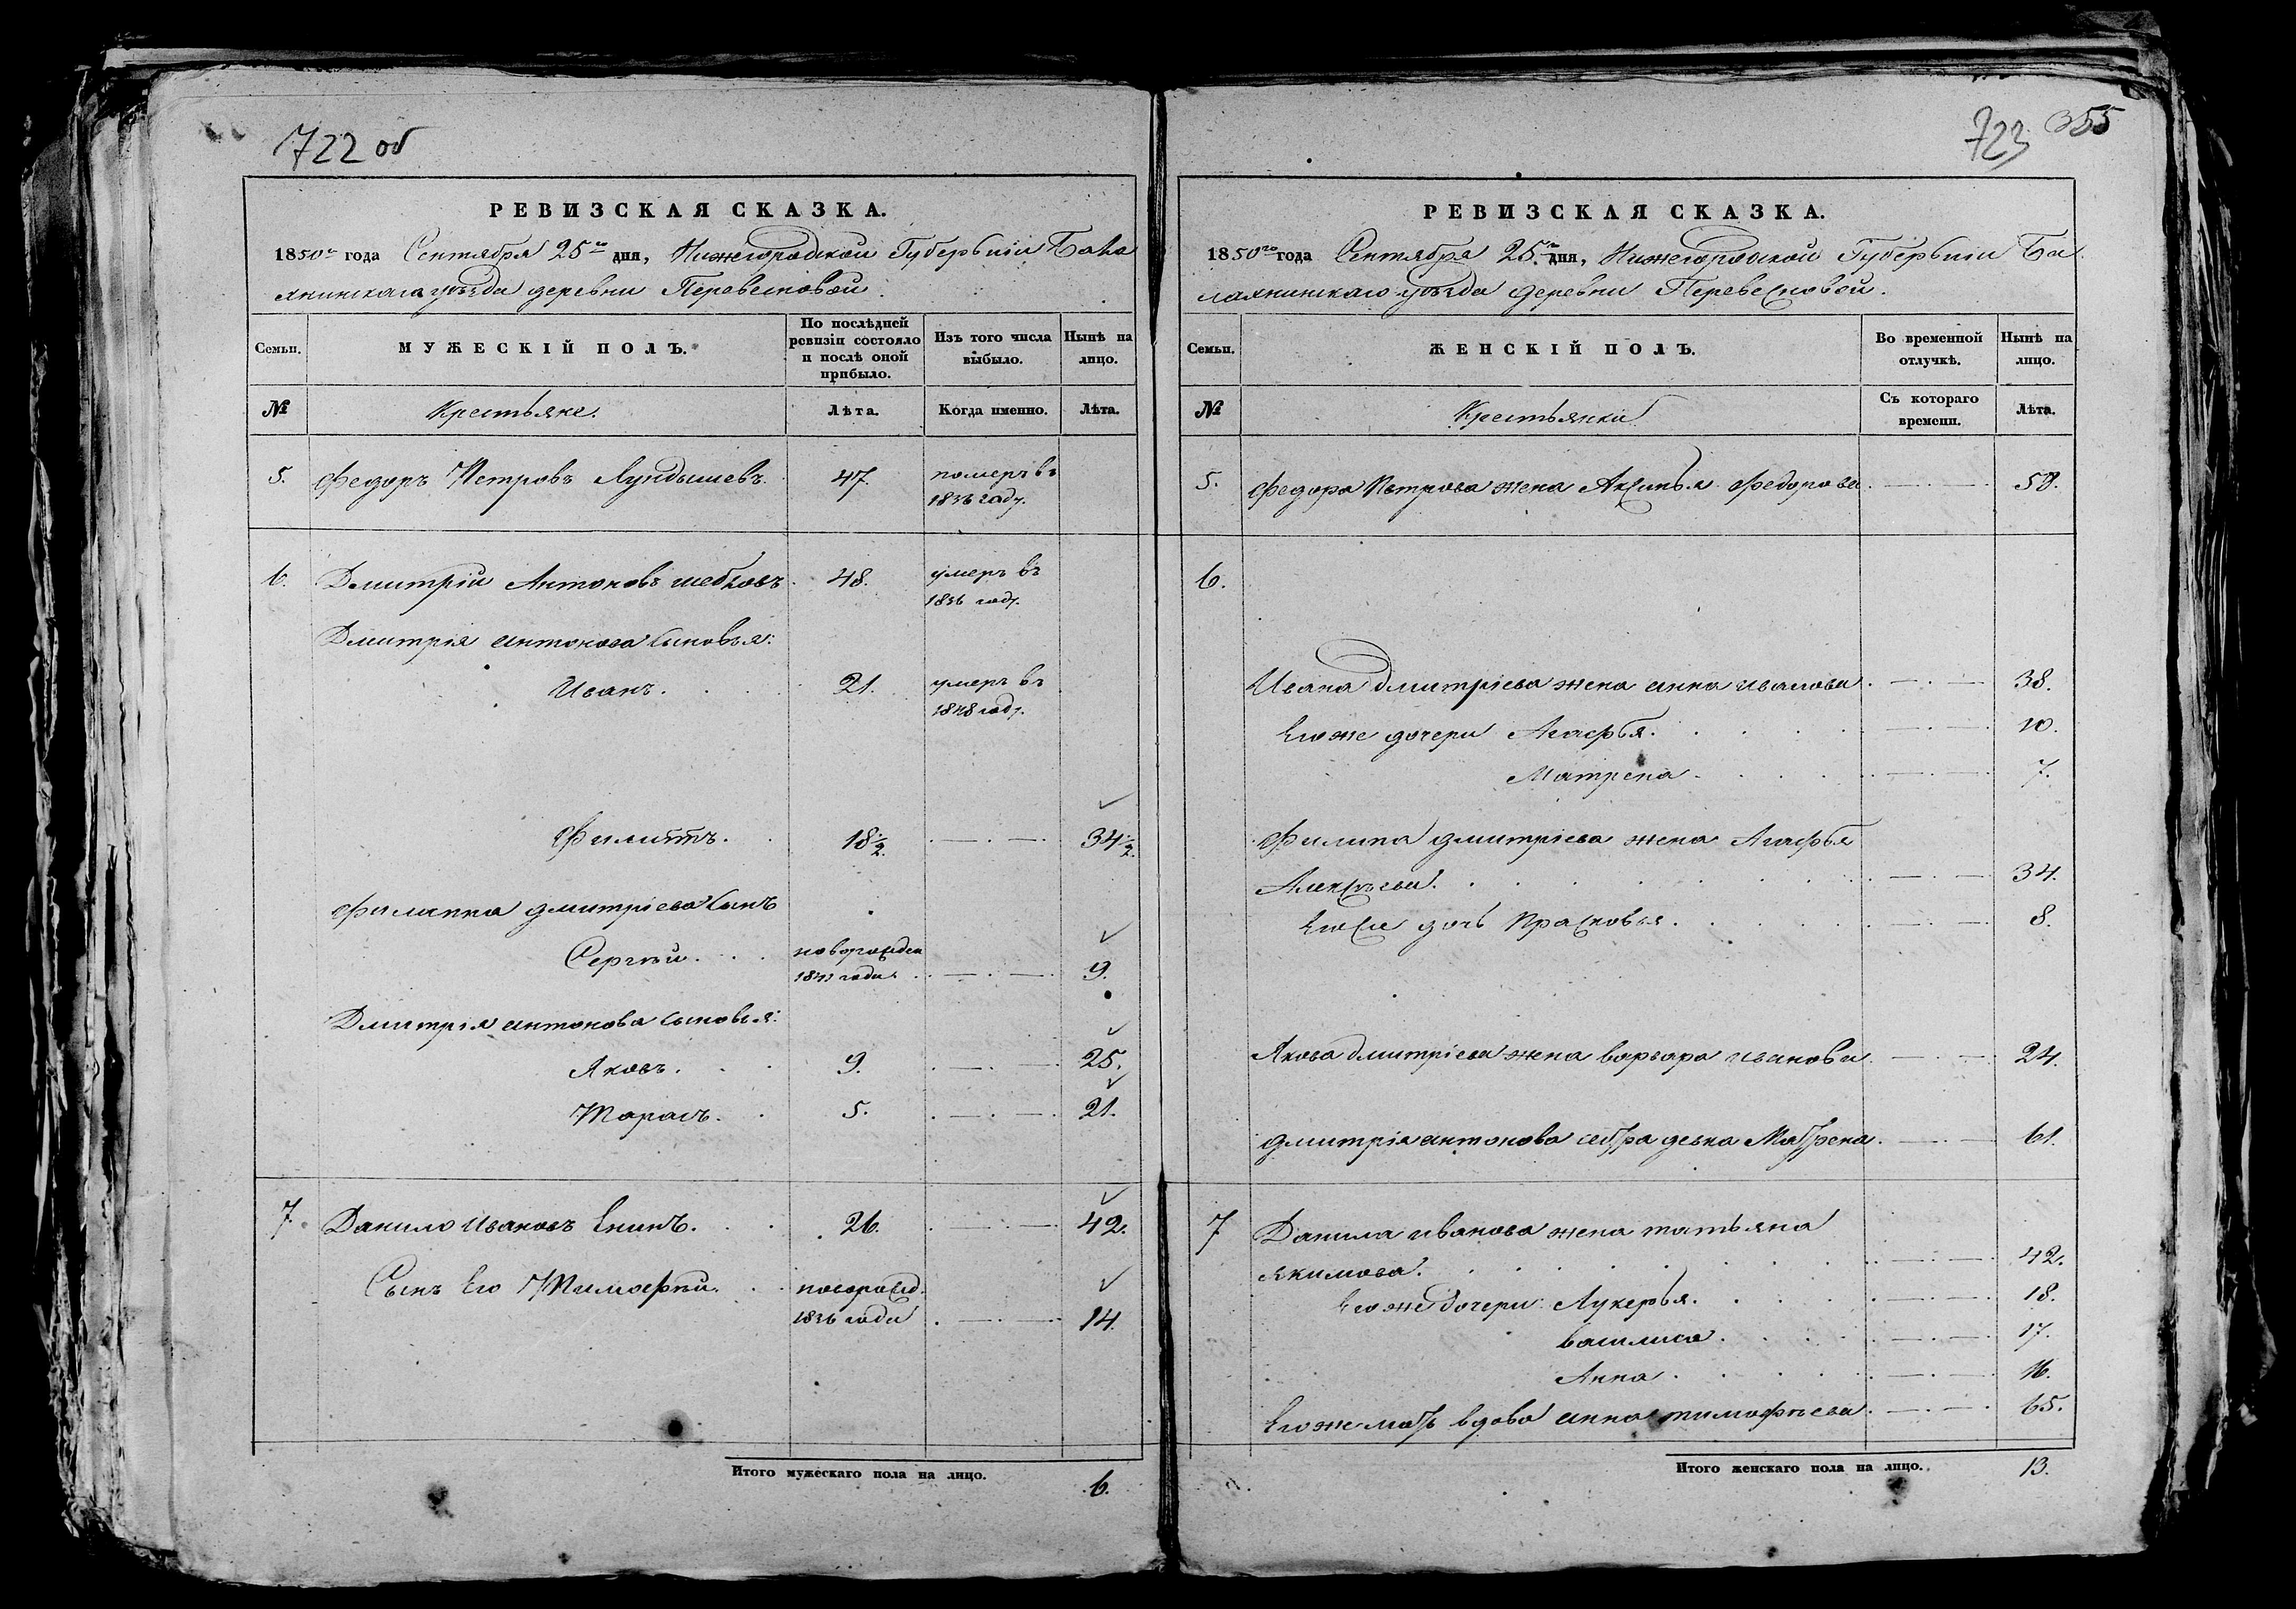 722 об
РЕВИЗСКАЯ СКАЗКА.
1850го года Сентября 25го дня, Нижегородской Губернiи Бала
хнинскага уѣзда деревни Перевесновой
Семьи.
МУЖЕСКІЙ ПОЛЪ.
По послѣдней ревизіи состояло и послѣ оной прибыло.
Изъ того числа выбыло.
Нынѣ на лицо.
№ Крестьяне. Лѣта. Когда именно. Лѣта.
5. Федоръ Петровъ Лундышевъ. 47. померъ въ
1836 году.
6. Дмитрій Антоновъ шебковъ. 48. умеръ въ
1836 году.
Дмитрія антонова сыновья:
Иванъ. 21. умеръ въ
1848 году.
Филиппъ. 18½. 34½.
Филиппа дмитріева сынъ
Сергѣй. новорожден
1841 года. 9.
Дмитрія антонова сыновья:
Яковъ. 9. 25.
Тарасъ. 5. 21.
7. Данило Ивановъ Енинъ. 26. 42.
Сынъ Его Тимофѣй. новорожд.
1836 года 14.
Итого мужескаго пола на лицо. 6.
723 355
РЕВИЗСКАЯ СКАЗКА.
1850го года Сентября 25го дня, Нижегородской Губернiи Ба
лахнинскаго уѣзда деревни Перевесновой.
Семьи.
ЖЕНСКІЙ ПОЛЪ.
Во временной отлучкѣ.
Нынѣ на лицо.
№ Крестьянки Съ котораго времени. Лѣта.
5. Федора Петрова жена Аксинья Федорова. 58.
6.
Ивана дмитріева жена анна иванова. 38.
Егоже дочери Агафья. 10.
Матрена. 7.
Филипа дмитріева жена Агафья
Алексѣева. 34.
Его дочь Прасковья. 8.
Якова дмитріева жена варвара иванова. 24.
дмитрія антонова сестра девка Матрена. 61.
7 Данила иванова жена татьяна
якимова. 42.
Егоже дочери: Лукерья. 18.
василиса. 17.
Анна. 16.
Егоже мать вдова анна тимофѣева. 65.
Итого женскаго пола на лицо. 13.